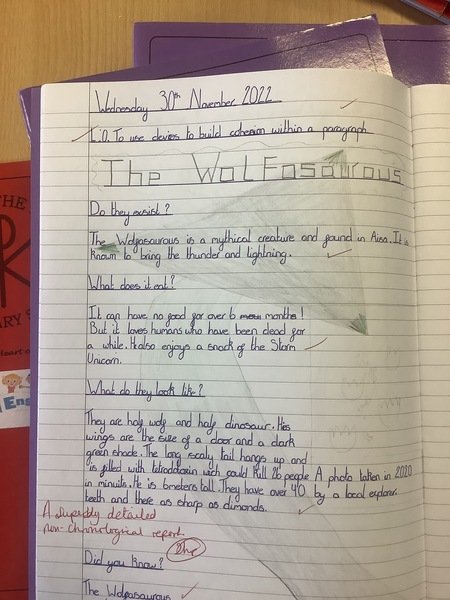 Wednesday 30th November 2022
L.O. To use devices to build cohesion within a paragraph
The Wolfasaurous
Do they exsist?
The Wolfasaurous is a mythical creature and found in Aisa. It is
known to bring the thunder and lightning.
What does it eat?
It can have no good for over 6 months!
But it loves humans who have been dead for
a while. It also enjoys a snack of the Storm
Unicorn.
What do they look like?
They are half wolf and half dinosaur. His
wings are the size of a door and a dark
green shade. The long scaly tail hangs up and
is filled with tetrodotoxin wich could kill 26 people
in minuits. He is 6meters tall. They have over 40
teeth and there as sharp as dimonds.
A photo taken in 2020
by a local explorer.
A superbly detailed
non-chronological report.
Did you know?
The Wolfasaurous
THE
ARY S
Heart o
Eng